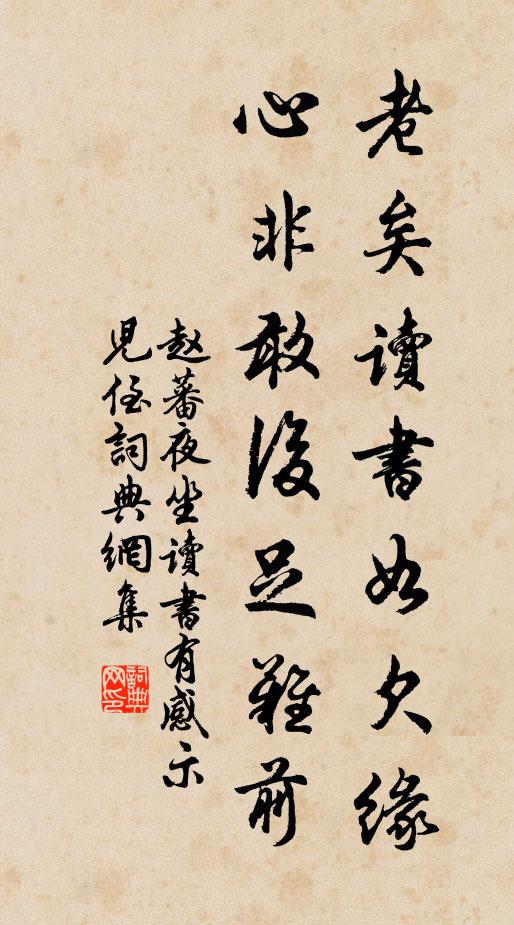 老矣讀書如欠緣
心非敢後足難前
赵蕃夜坐讀書有感示
児侄詞典網集
詞典网印